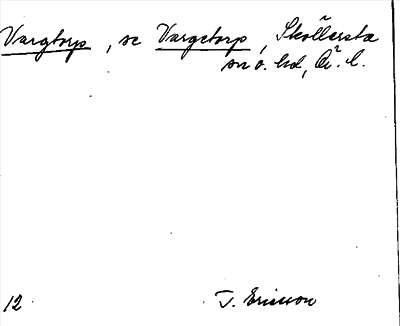 Vargtorp, se Vargetorp, Sköllersta
sn o. hd, Ör. l.
12 T. Ericsson